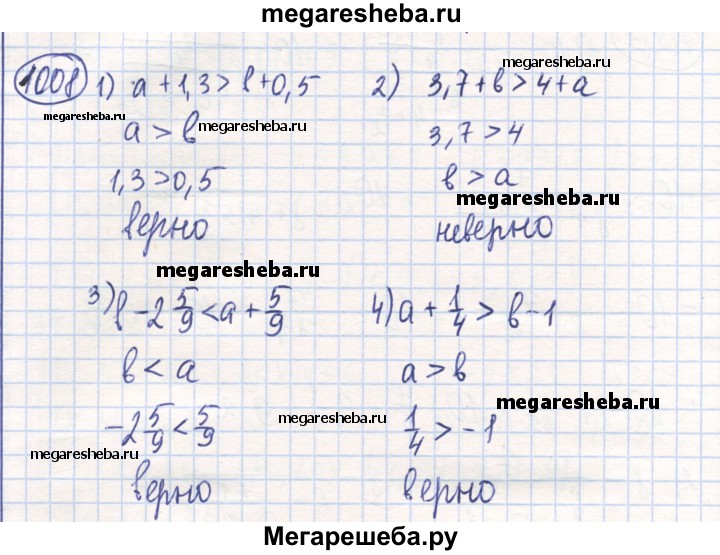 megaresheba.ru
1008 1) a + 1,3 > b + 0,5
2) 3,7 + b > 4 + a
megaresheba.ru
megaresheba.ru
a > b megaresheba.ru
3,7 > 4
1,3 > 0,5
b > a
megaresheba.ru
верно
неверно
megaresheba.ru
3) b - 2 5/9 < a + 5/9
4) a + 1/4 > b - 1
b < a
a > b
megaresheba.ru
-2 5/9 < 5/9
megaresheba.ru
1/4 > -1
megaresheba.ru
верно
верно
Мегарешеба.ру